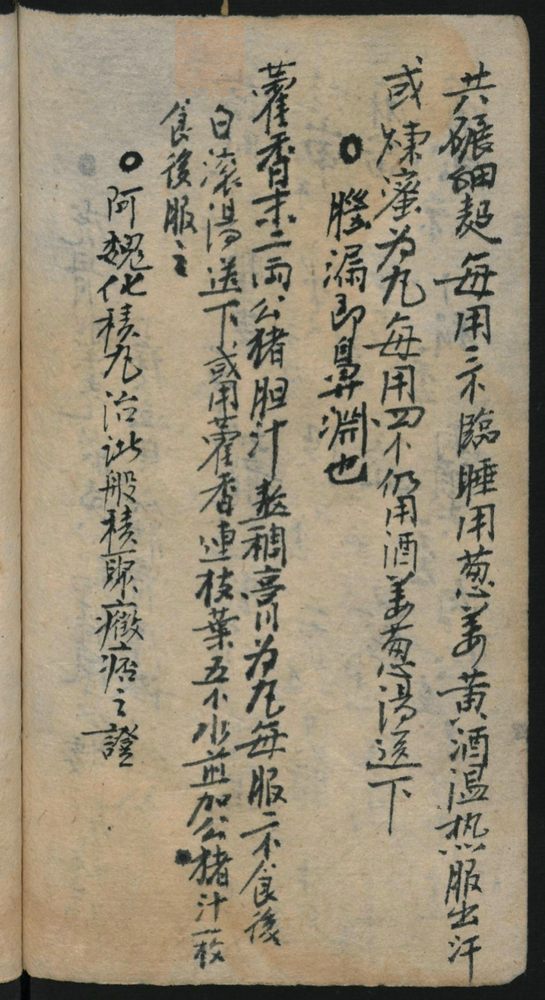 共碾細麪每用三个臨睡用葱姜黄酒温热服出汗
或煉蜜为丸每用四个仍用酒姜葱湯送下
○ 腦漏即鼻淵也
藿香末二両公猪胆汁熬稠为丸每服二个食後
白滚湯送下或用藿香連枝葉五个水煎加公猪汁一枚
食後服之
○ 阿魏化積丸治諸般積聚癥痞之證